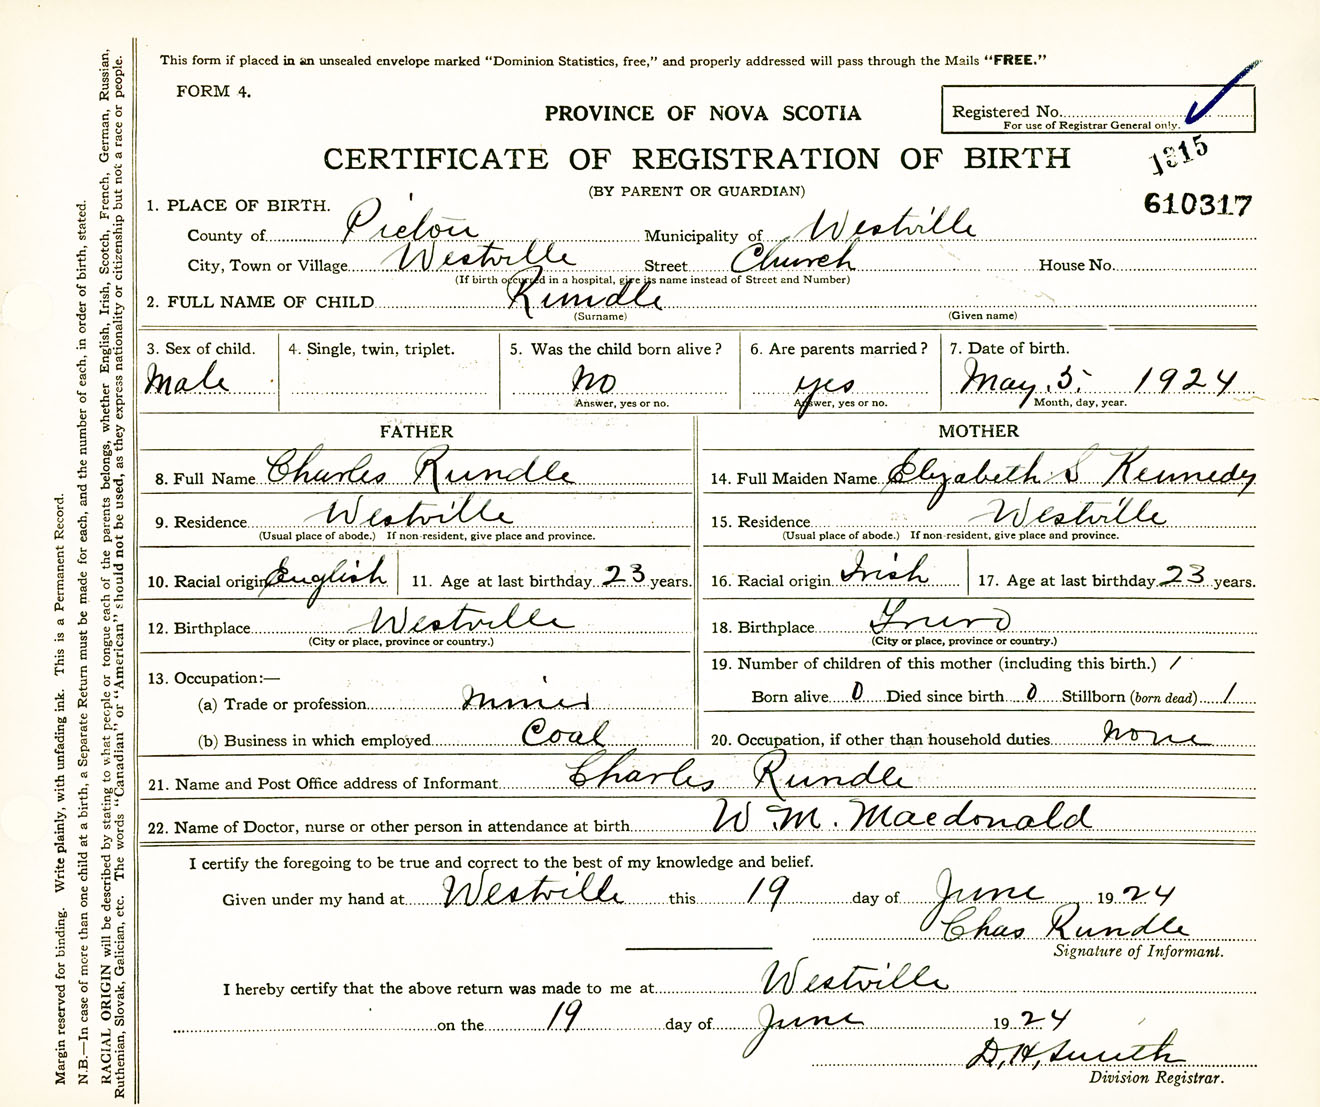 This form if placed in an unsealed envelope marked “Dominion Statistics, free,” and properly addressed will pass through the Mails “FREE.”
FORM 4.
PROVINCE OF NOVA SCOTIA
Registered No.
For use of Registrar General only.
CERTIFICATE OF REGISTRATION OF BIRTH
1315
(BY PARENT OR GUARDIAN)
610317
1. PLACE OF BIRTH.
County of Pictou Municipality of Westville
City, Town or Village Westville Street Church House No.
(If birth occurred in a hospital, give its name instead of Street and Number)
2. FULL NAME OF CHILD Rundle
(Surname) (Given name)
3. Sex of child. 4. Single, twin, triplet. 5. Was the child born alive? 6. Are parents married? 7. Date of birth.
Male No yes May 5. 1924
Answer, yes or no. Answer, yes or no. Month, day, year.
FATHER MOTHER
8. Full Name Charles Rundle 14. Full Maiden Name Elyzabeth S Kennedy
9. Residence Westville 15. Residence Westville
(Usual place of abode.) If non-resident, give place and province. (Usual place of abode.) If non-resident, give place and province.
10. Racial origin English 11. Age at last birthday 23 years. 16. Racial origin Irish 17. Age at last birthday 23 years.
12. Birthplace Westville 18. Birthplace Truro
(City or place, province or country.) (City or place, province or country.)
19. Number of children of this mother (including this birth.) 1
13. Occupation:—
Born alive 0 Died since birth 0 Stillborn (born dead) 1
(a) Trade or profession Miner
(b) Business in which employed Coal 20. Occupation, if other than household duties none
21. Name and Post Office address of Informant Charles Rundle
22. Name of Doctor, nurse or other person in attendance at birth W. M. Macdonald
I certify the foregoing to be true and correct to the best of my knowledge and belief.
Given under my hand at Westville this 19 day of June 1924
Chas Rundle
Signature of Informant.
I hereby certify that the above return was made to me at Westville
on the 19 day of June 1924
D. H. Smith
Division Registrar.
Margin reserved for binding. Write plainly, with unfading ink. This is a Permanent Record.
N.B.—In case of more than one child at a birth, a Separate Return must be made for each, and the number of each, in order of birth, stated.
RACIAL ORIGIN will be described by stating to what people or tongue each of the parents belongs, whether English, Irish, Scotch, French, German, Russian,
Ruthenian, Slovak, Galician, etc. The words “Canadian” or “American” should not be used, as they express nationality or citizenship but not a race or people.